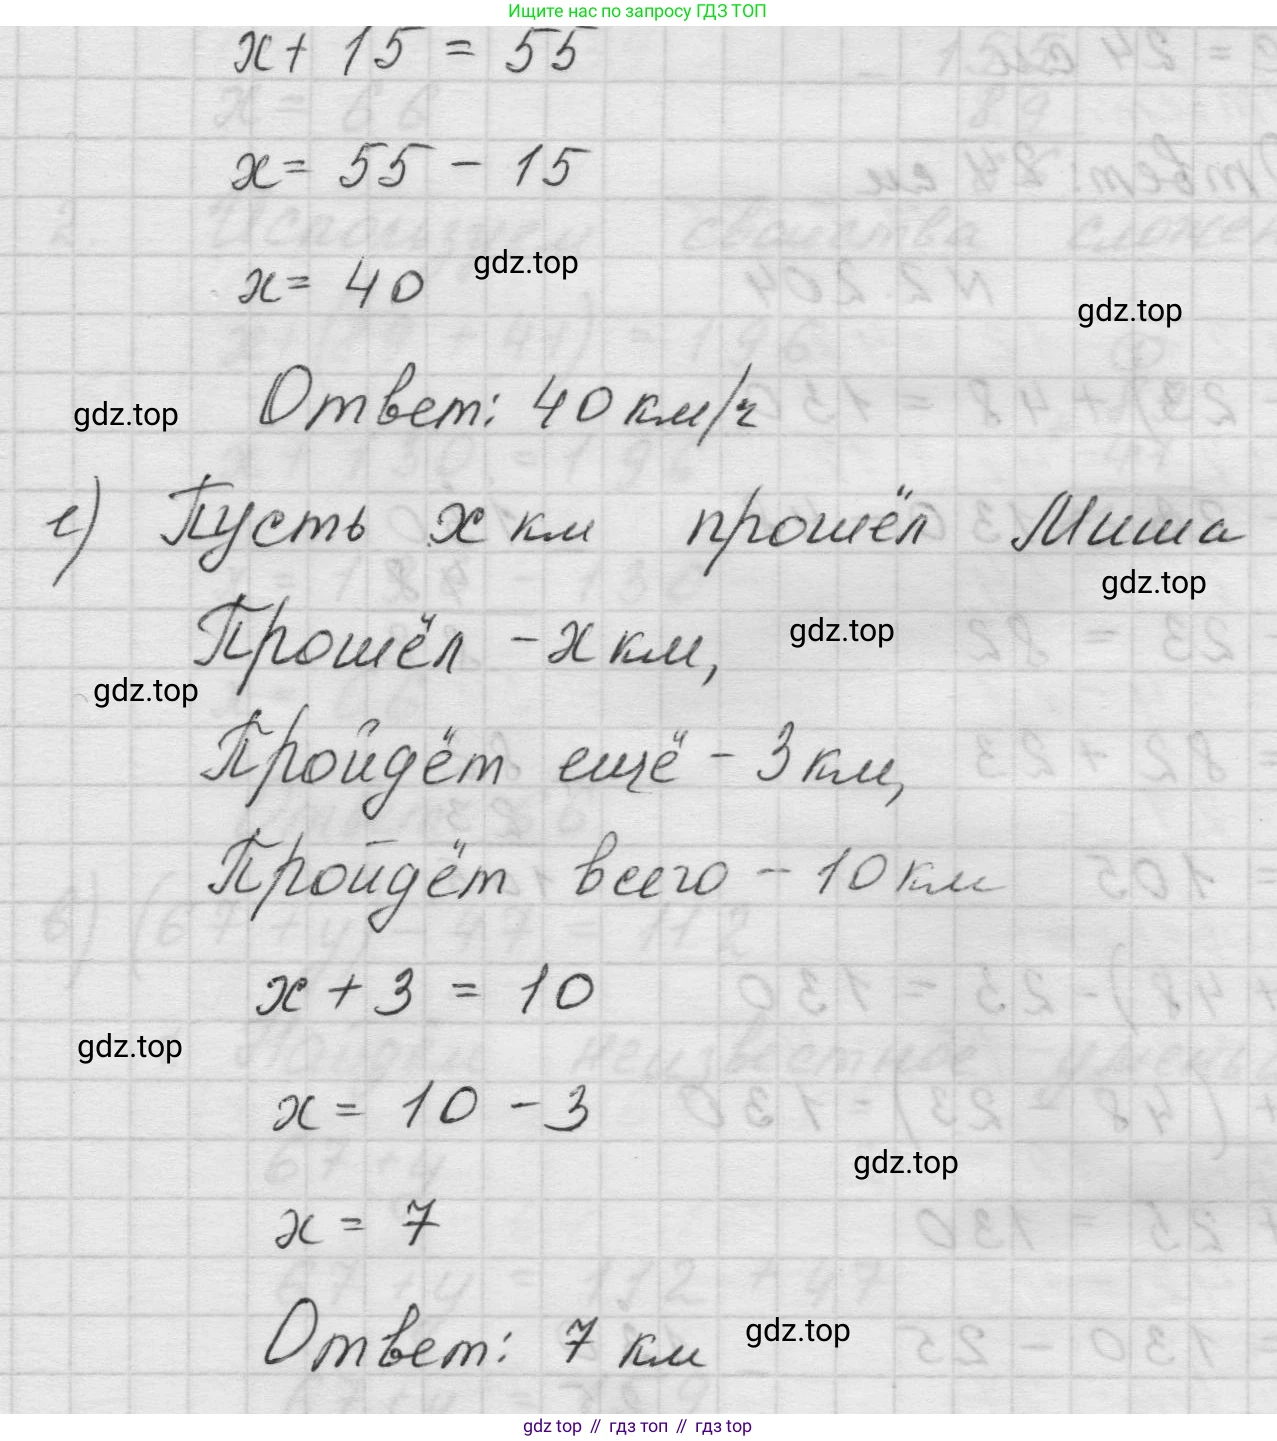 Ищите нас по запросу ГДЗ ТОП
x + 15 = 55
x = 55 - 15
x = 40
gdz.top
gdz.top
Ответ: 40 км/ч
gdz.top
е) Пусть x км прошёл Миша
gdz.top
Прошёл - x км,
gdz.top
gdz.top
Пройдёт ещё - 3 км,
Пройдёт всего - 10 км
x + 3 = 10
gdz.top
x = 10 - 3
gdz.top
x = 7
Ответ: 7 км
gdz.top
gdz top // гдз топ // гдз top